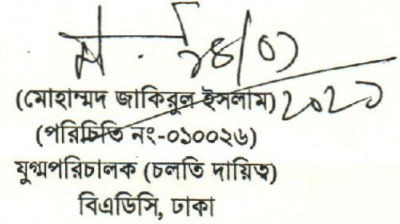 (মোহাম্মদ জাকিরুল ইসলাম)
(পরিচিতি নং-০১০০২৬)
যুগ্মপরিচালক (চলতি দায়িত্ব)
বিএডিসি, ঢাকা